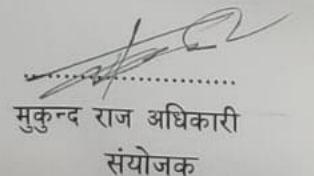 मुकुन्द राज अधिकारी
संयोजक